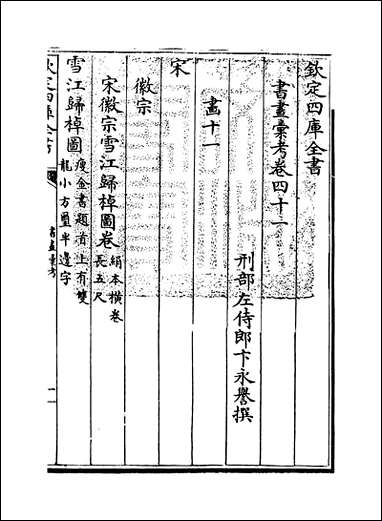 欽定四庫全書
書畫彙考卷四十一
刑部左侍郎卞永譽撰
畫十一
宋
徽宗
宋徽宗雪江歸棹圖卷 絹本橫卷
長五尺
雪江歸棹圖 瘦金書題首上有雙
龍小方璽半邊字
欽定四庫全書
書畫彙考
一